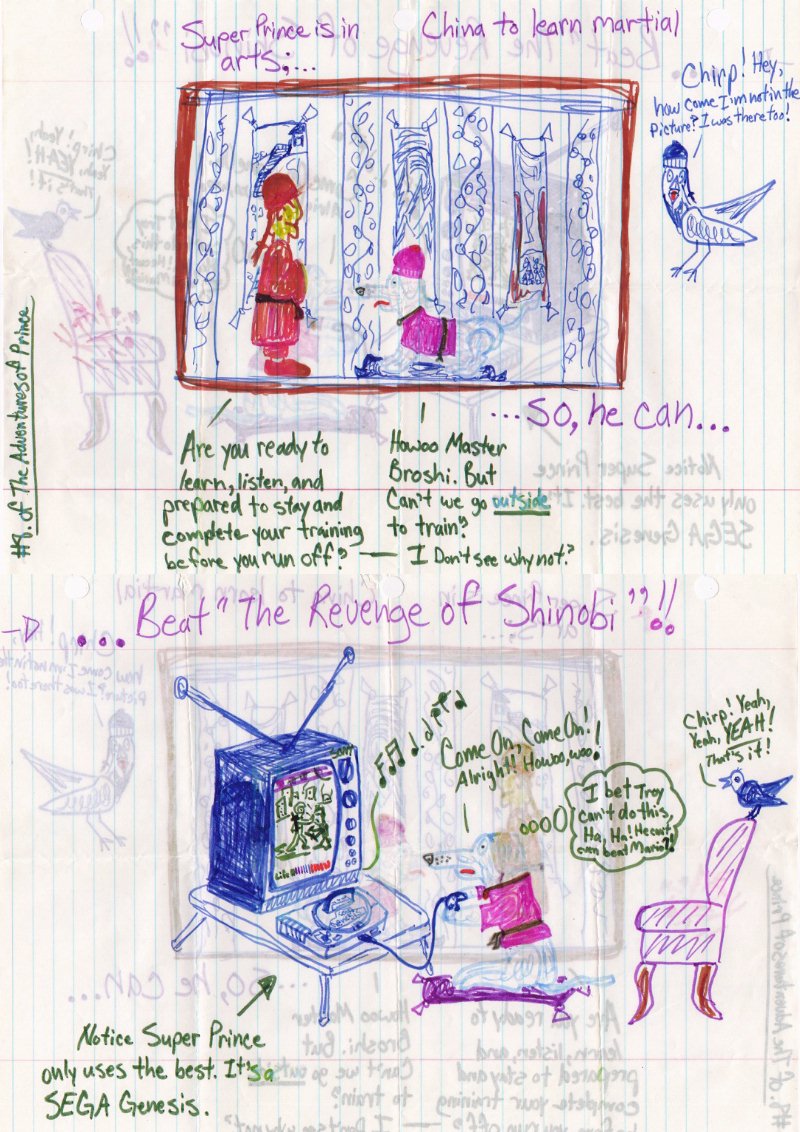 Super Prince is in China to learn martial
arts;...
Chirp! Hey,
how come I'm not in the
Picture? I was there too!
#8. of The Adventures of Prince
...so, he can...
Are you ready to
learn, listen, and
prepared to stay and
complete your training
before you run off?
Howoo Master
Broshi. But
Can't we go outside
to train?
I Don't see why not?
... Beat "The Revenge of Shinobi"!!
Come On, Come On!
Alright! Howoo, woo!
I bet Troy
can't do this,
Ha, Ha! He can't
even beat Mario?!
Chirp! Yeah,
Yeah, YEAH!
That's it!
Sony
Life
Sega
Genesis
Notice Super Prince
only uses the best. It's a
SEGA Genesis.